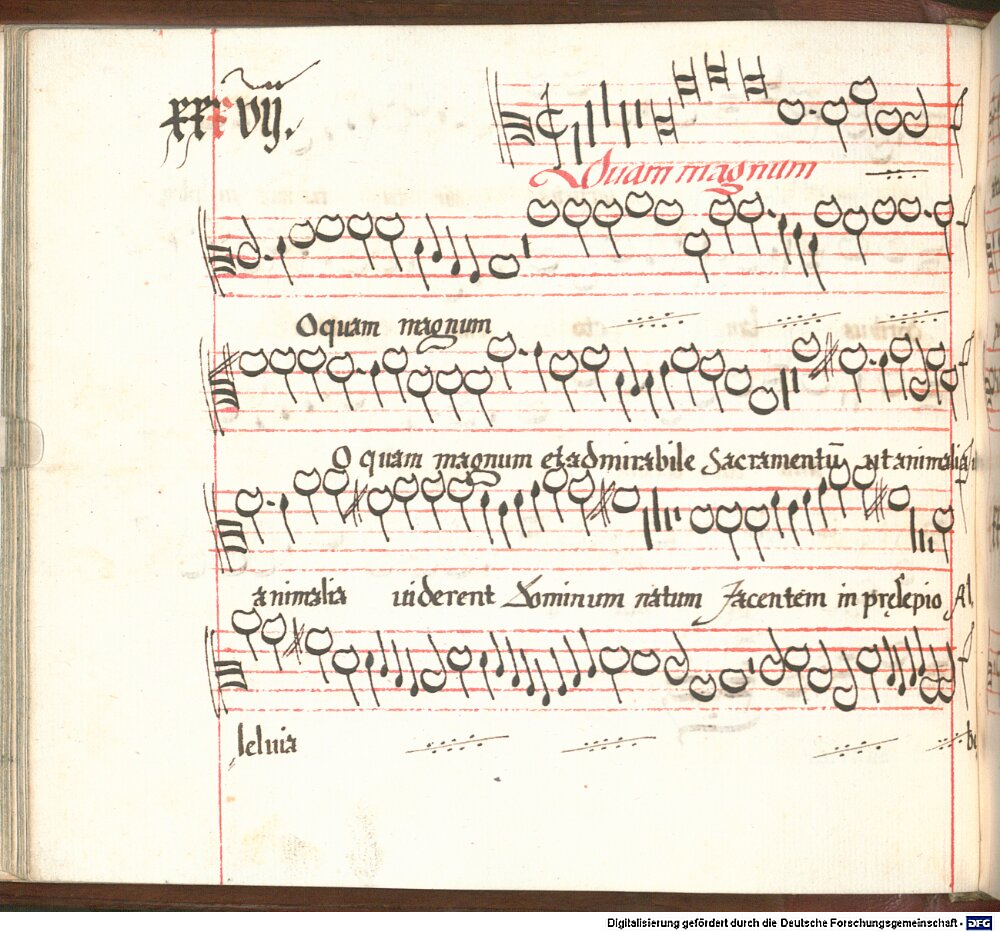 xxxvij.
Quam magnum
O quam magnum
O quam magnum et admirabile Sacramentū ut animalia
animalia viderent Dominum natum Jacentem in pręsepio Al
leluia
Digitalisierung gefördert durch die Deutsche Forschungsgemeinschaft - DFG